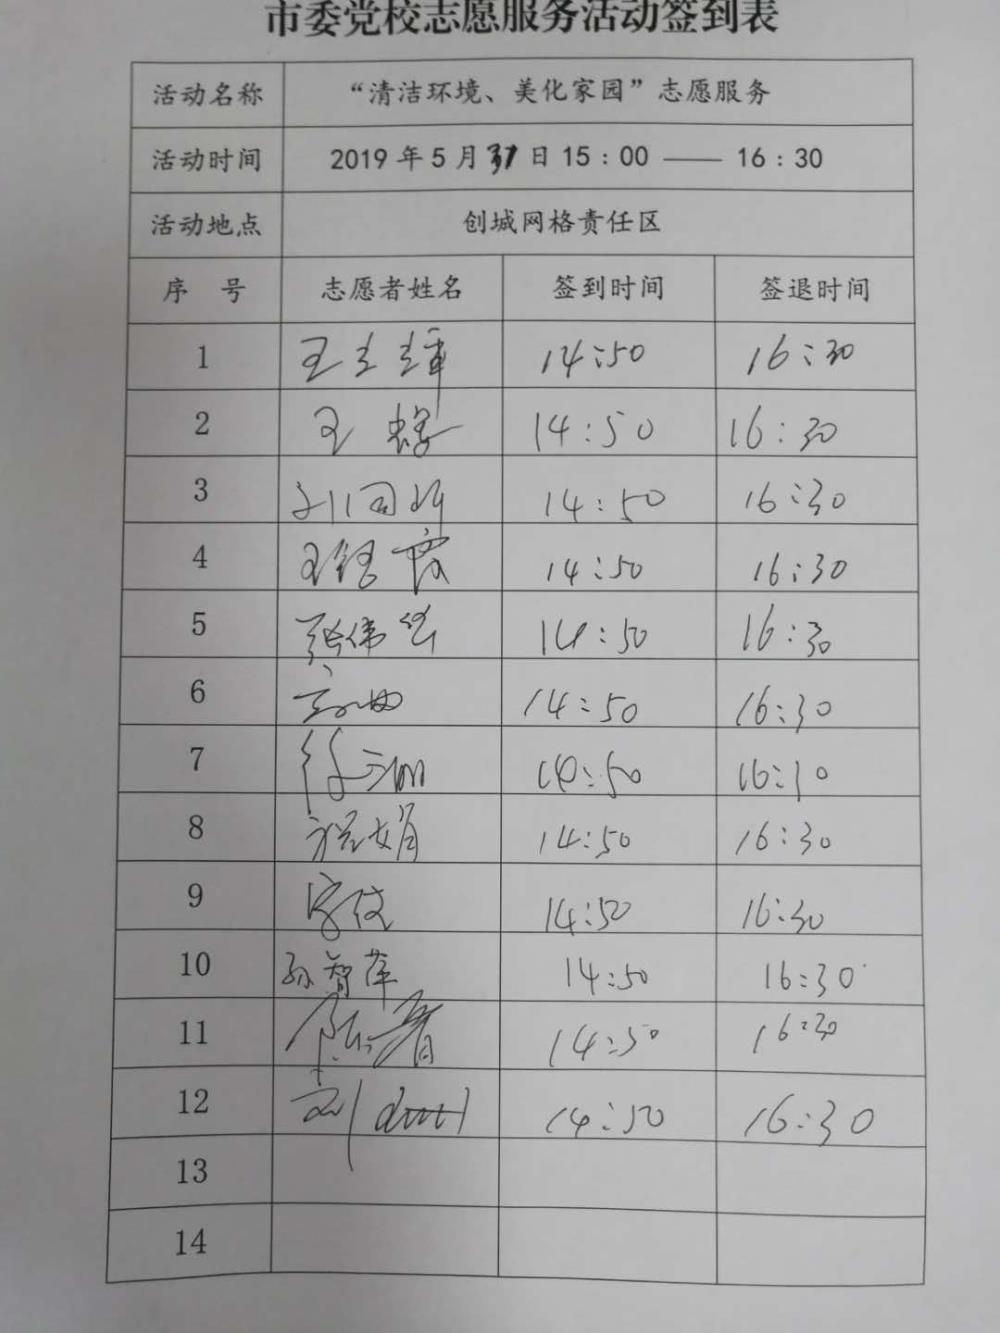 市委党校志愿服务活动签到表
活动名称 “清洁环境、美化家园”志愿服务
活动时间 2019年5月31日15：00 —— 16：30
活动地点 创城网格责任区
序 号 志愿者姓名 签到时间 签退时间
1 14:50 16:30
2 王 14:50 16:30
3 14:50 16:30
4 14:50 16:30
5 张伟 14:50 16:30
6 14:50 16:30
7 14:50 16:30
8 娟 14:50 16:30
9 14:50 16:30
10 孙智萍 14:50 16:30
11 14:50 16:30
12 刘 14:50 16:30
13
14